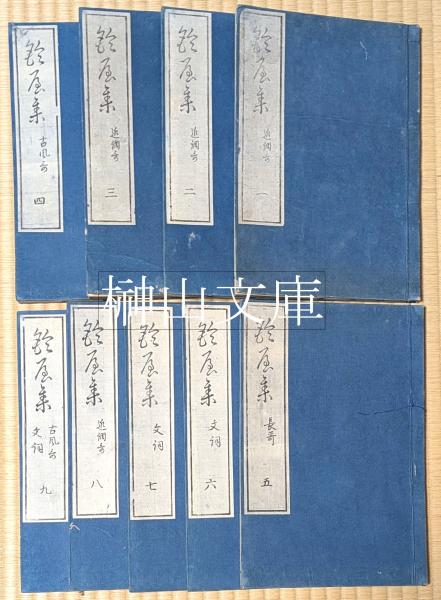 鈴屋集 近調哥 一
鈴屋集 近調哥 二
鈴屋集 近調哥 三
鈴屋集 古風哥 四
榊山文庫
鈴屋集 長哥 五
鈴屋集 文詞 六
鈴屋集 文詞 七
鈴屋集 近調哥 八
鈴屋集 古風哥 文詞 九